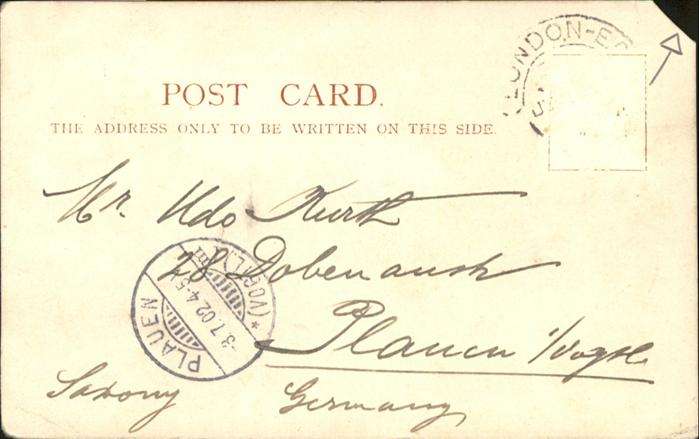 LONDON-E
POST CARD.
THE ADDRESS ONLY TO BE WRITTEN ON THIS SIDE.
Mr. Udo Kurth
28 Dobenaustr
Plauen i/Vogtl
Saxony Germany
PLAUEN
-3.7.02.4-5
*(VOGTL.)